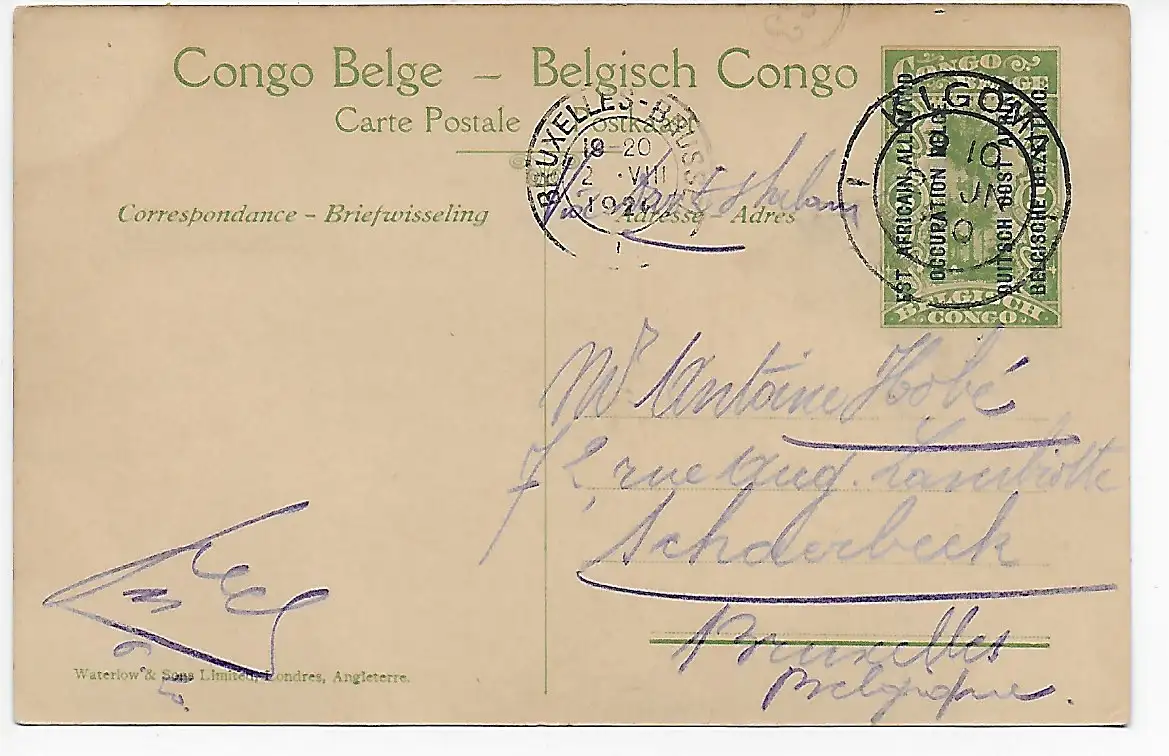 Congo Belge – Belgisch Congo
Carte Postale Postkaart
Correspondance – Briefwisseling Adresse – Adres
BRUXELLES - BRUSSEL
18-20
2 · VIII
192
CONGO
BELGE
EST AFRICAIN ALLEMAND
OCCUPATION BELGE.
DUITSCH OOST AFRIKA
BELGISCHE BEZETTING.
BELGISCH
CONGO
KIGOMA
10
JN
Mr Antoine Hobé
72, rue Aug. Lambiotte
Schaerbeek
Bruxelles
Belgique.
Waterlow & Sons Limited, Londres, Angleterre.